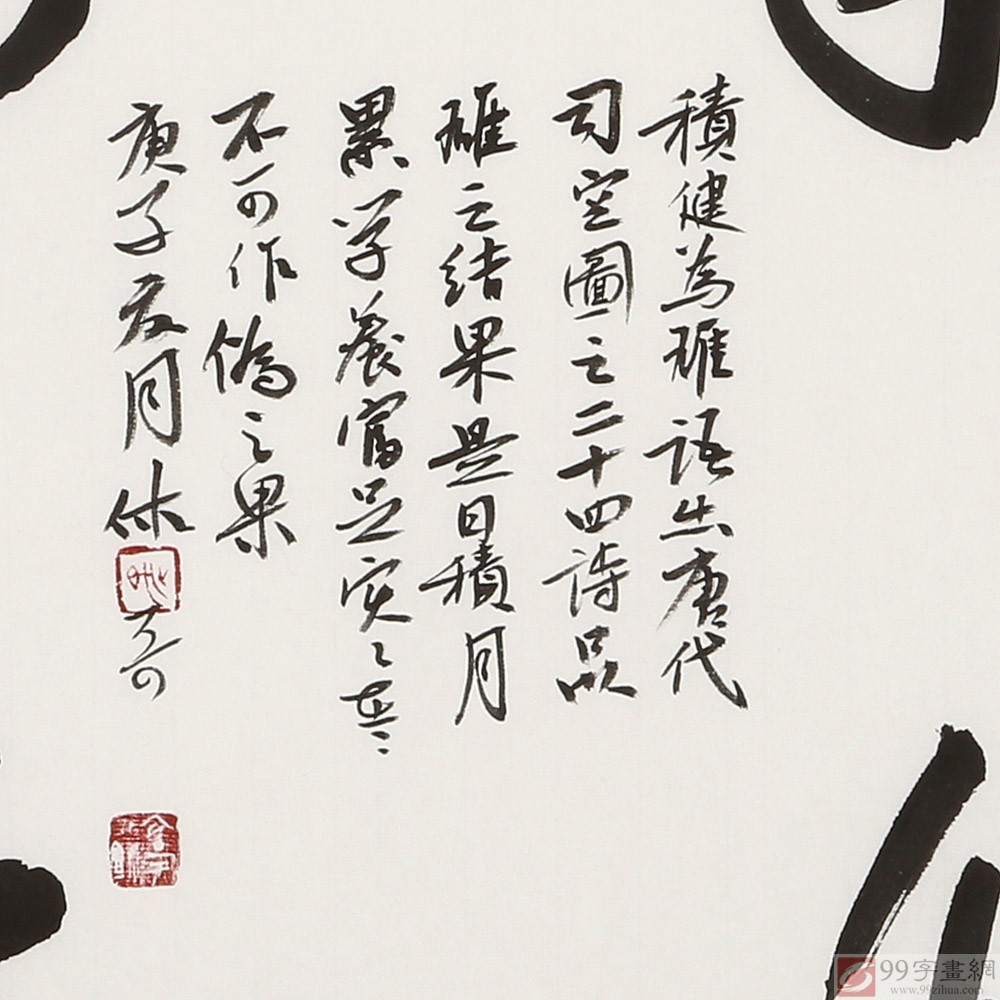 積健為雄語出唐代
司空圖之二十四詩品
雄之結果是日積月
累学養富足实々在々
不可作偽之果
庚子友月休
99字畫網
www.99zihua.com